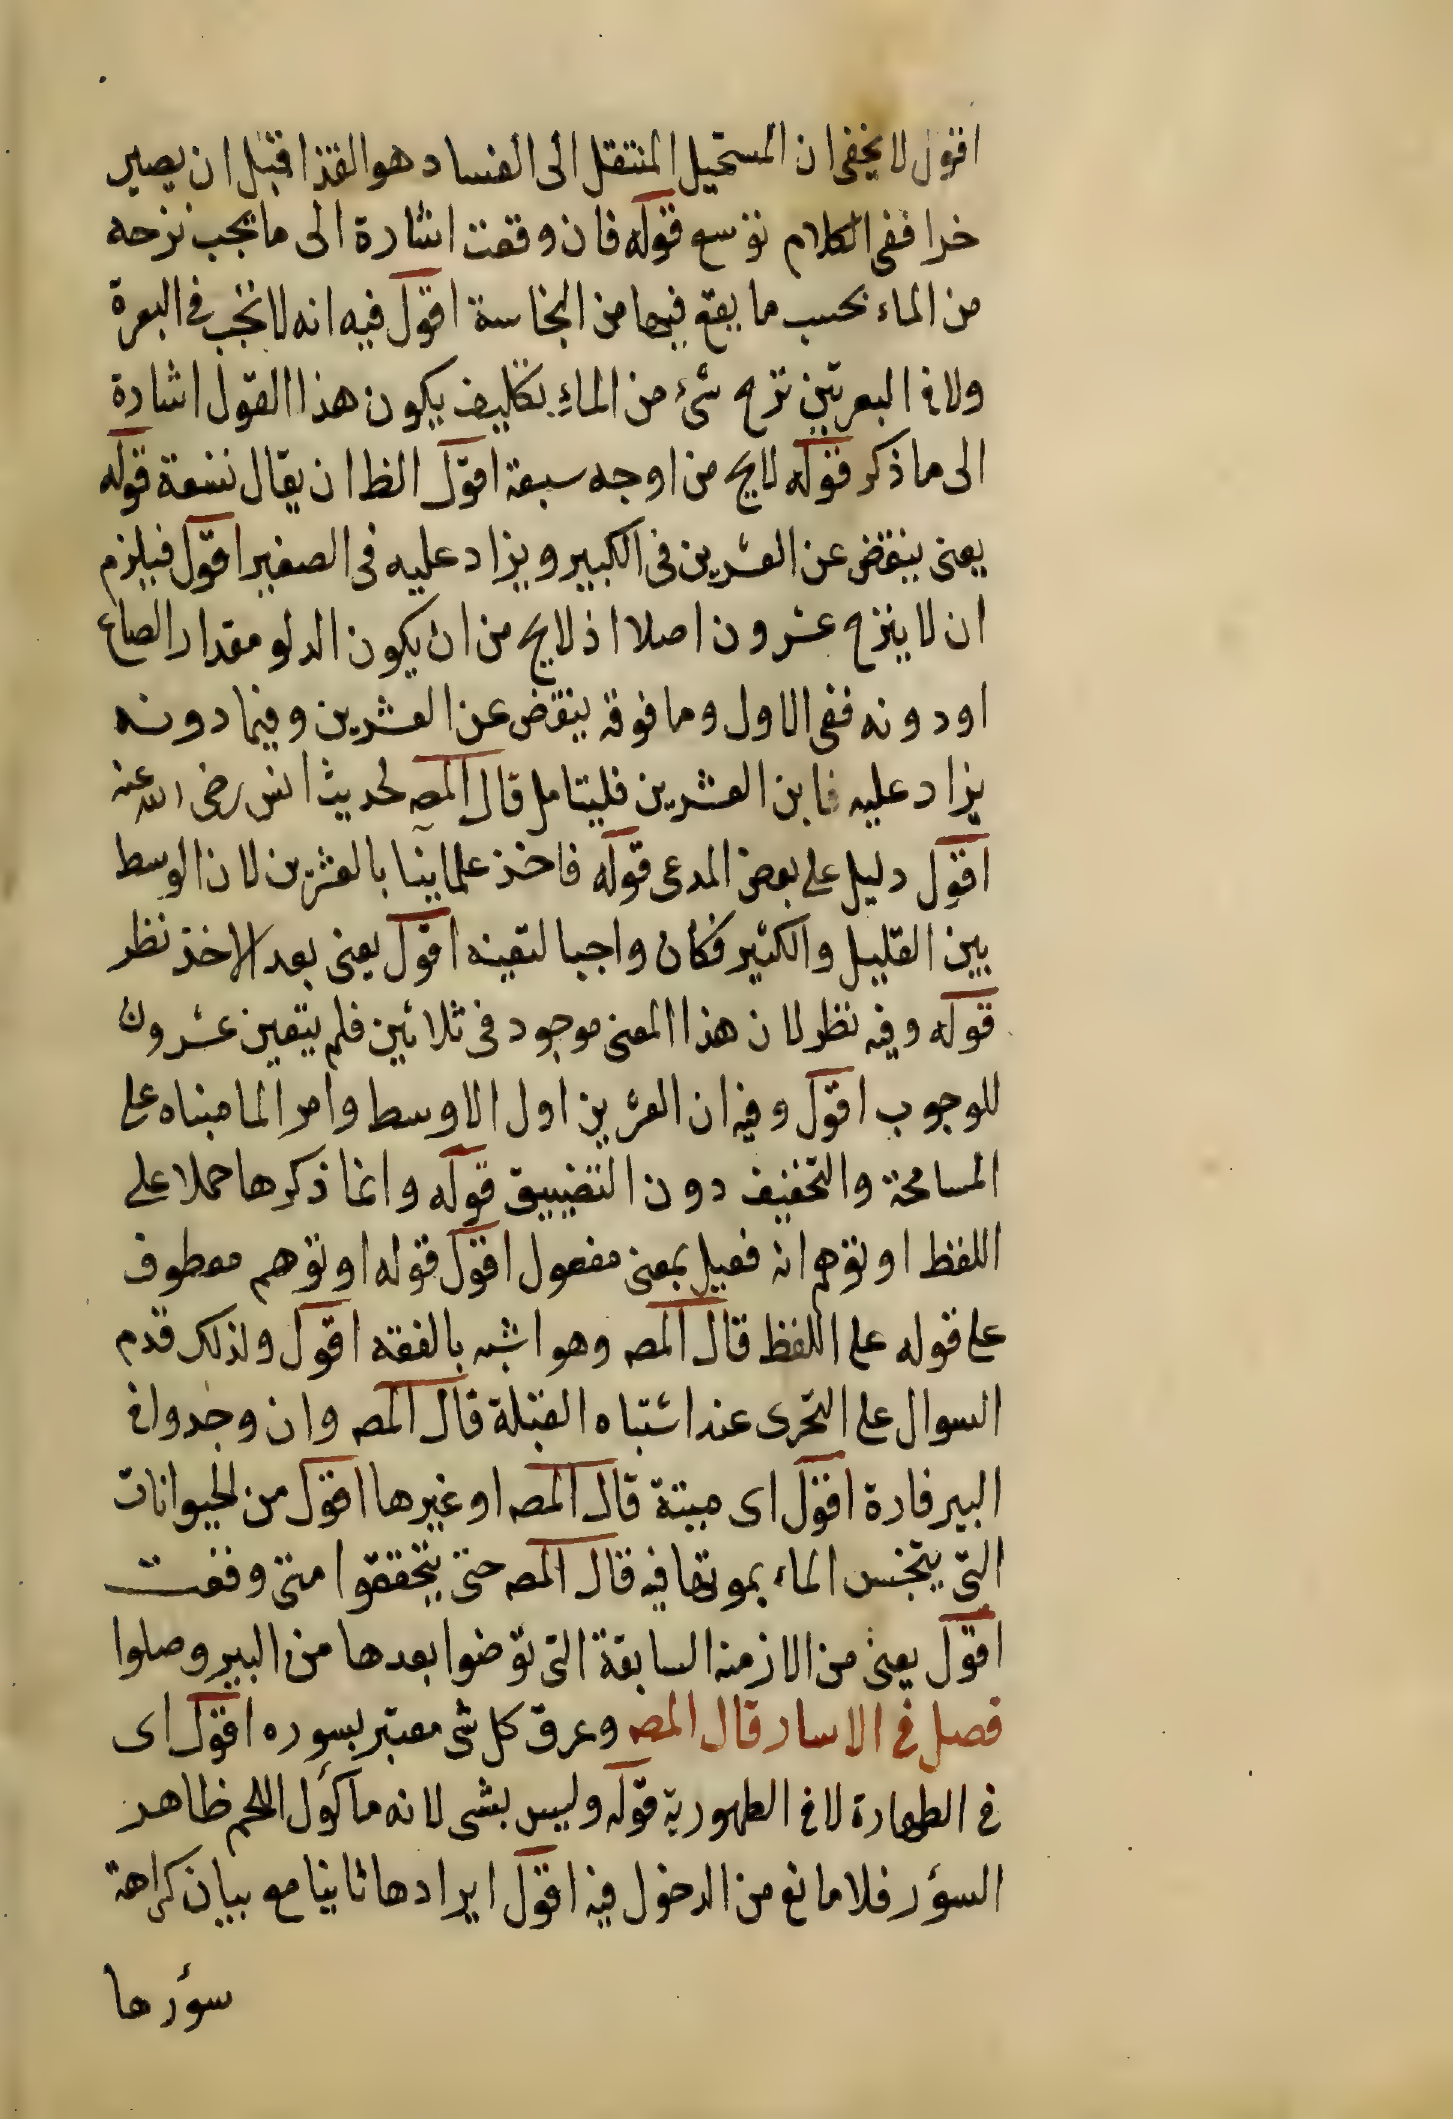 اقول لا يخفى ان المستحيل المنتقل الى الفساد هو الغذا قبل ان يصير
خرا ففى الكلام توسع قوله فان وقعت اشارة الى ما يجب نزحه
من الماء بحسب ما يقع فيها من النجاسة اقول فيه انه لا يجب فى البعرة
ولا فى البعرتين نزح شئ من الماء فكيف يكون هذا القول اشارة
الى ما ذكر قوله لا يخ من اوجه سبعة اقول الظ ان يقال تسعة قوله
يعنى ينقض عن العشرين فى الكبير ويزاد عليه فى الصغير اقول فيلزم
ان لا ينزح عشرون اصلا اذ لا يخ من ان يكون الدلو مقدار الصاع
او دونه ففى الاول وما فوقه ينقض عن العشرين وفيما دونه
يزاد عليه فاين العشرين فليتامل قال المصه لحديث انس رضى الله عنه
اقول دليل على بعض المدعى قوله فاخذ علماينا بالعشرين لان الوسط
بين القليل والكثير فكان واجبا لتعينه اقول يعنى بعد الاخذ نظر
قوله وفيه نظر لان هذا المعنى موجود فى ثلاثين فلم يتعين عشرون
للوجوب اقول وفيه ان العشرين اول الاوسط وامر الما مبناه على
المسامحة والتخفيف دون التضييق قوله وانما ذكرها حملا على
اللفظ او توهم انه فعيل بمعنى مفعول اقول قوله او توهم معطوف
على قوله على اللفظ قال المصه وهو اشبه بالفقه اقول ولذلك قدم
السوال على التحرى عند اشتباه القبلة قال المصه وان وجدوا فى
البير فارة اقول اى ميتة قال المصه او غيرها اقول من الحيوانات
التى يتنجس الماء بموتها فيه قال المصه حتى يتحققوا متى وقعت
اقول يعنى من الازمنه السابقة التى توضوا بعدها من البير وصلوا
فصل فى الاسار قال المصه وعرق كل شى معتبر بسوره اقول اى
فى الطهارة لا فى الطهورية قوله وليس بشى لانه ماكول اللحم ظاهر
السؤر فلا مانع من الدخول فيه اقول ايرادها ثانيا مع بيان كراهة
سؤرها